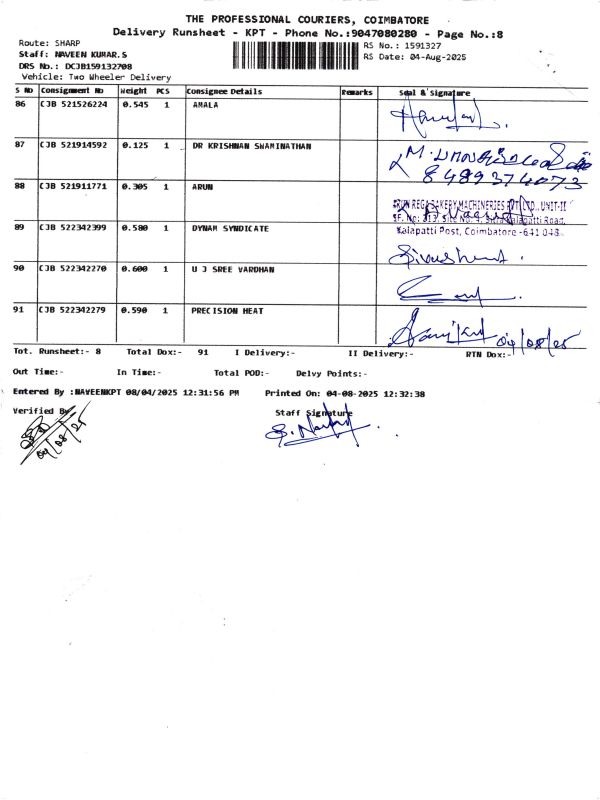 THE PROFESSIONAL COURIERS, COIMBATORE
Delivery Runsheet - KPT - Phone No.:9047080280 - Page No.:8
Route: SHARP
Staff: NAVEEN KUMAR.S
DRS No.: DCJB159132708
Vehicle: Two Wheeler Delivery
RS No.: 1591327
RS Date: 04-Aug-2025
S NO Consignment NO Weight PCS Consignee Details Remarks Seal & Signature
86 CJB 521526224 0.545 1 AMALA
87 CJB 521914592 0.125 1 DR KRISHNAN SWAMINATHAN
8489374073
88 CJB 521911771 0.305 1 ARUN
BAKERY MACHINERIES PVT LTD., UNIT-II
Kalapatti Road,
Kalapatti Post, Coimbatore -641 048.
89 CJB 522342399 0.580 1 DYNAM SYNDICATE
90 CJB 522342270 0.600 1 U J SREE VARDHAN
91 CJB 522342279 0.590 1 PRECISION HEAT
04/08/25
Tot. Runsheet:- 8 Total Dox:- 91 I Delivery:- II Delivery:- RTN Dox:-
Out Time:- In Time:- Total POD:- Delvy Points:-
Entered By :NAVEENKPT 08/04/2025 12:31:56 PM Printed On: 04-08-2025 12:32:38
Verified By Staff Signature
04/08/25